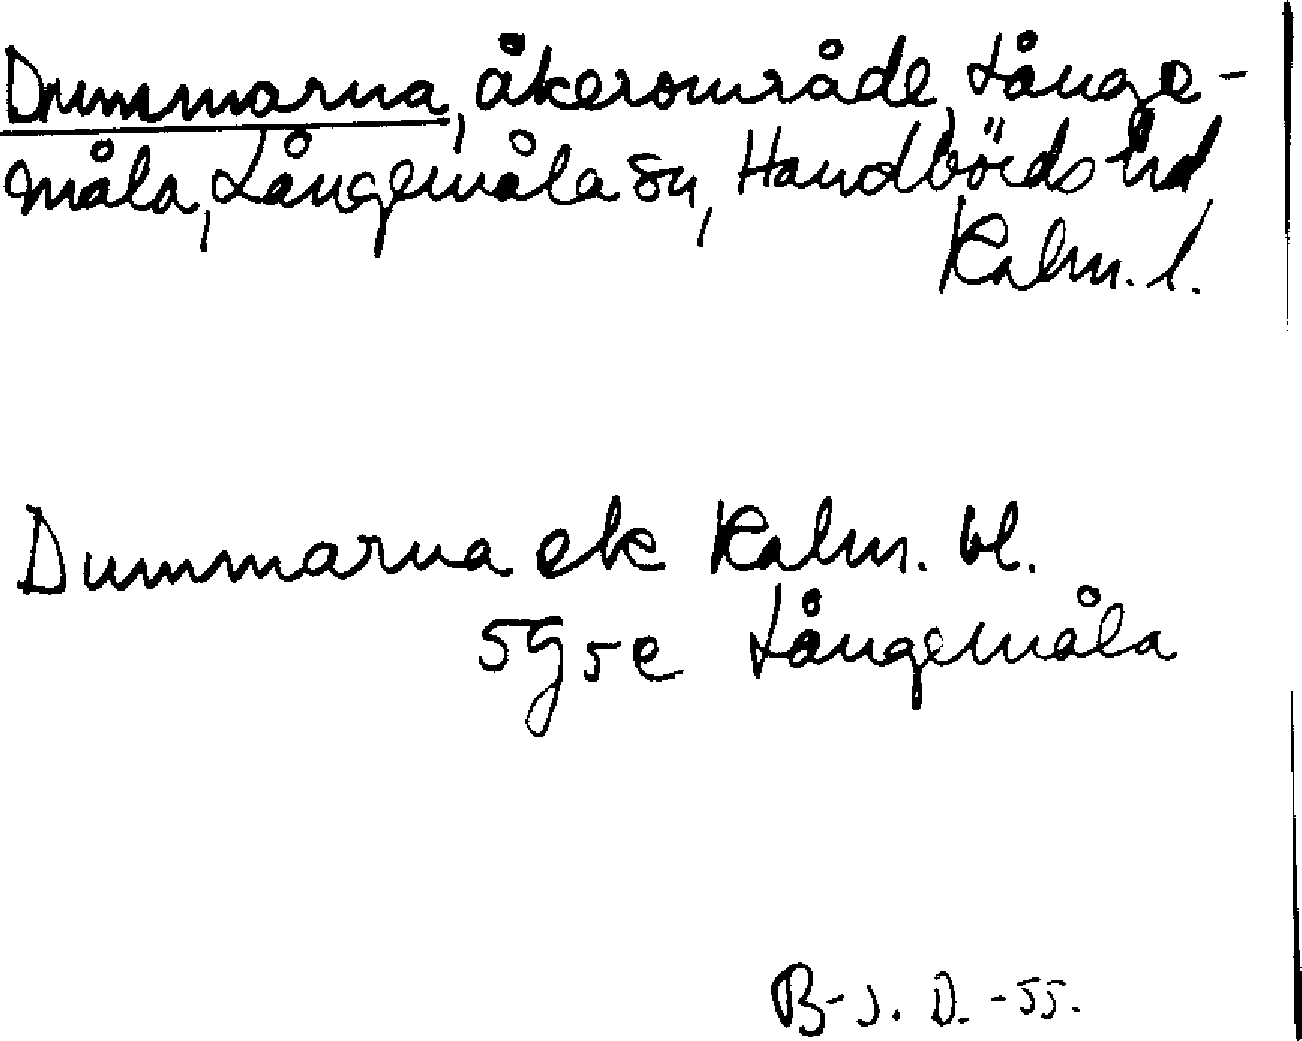 Dummarna, åkerområde, Långe-
måla, Långemåla sn, Handbörds hd
Kalm. l.
Dummarna ek Kalm. bl.
5G5e Långemåla
B-J. D. -55.